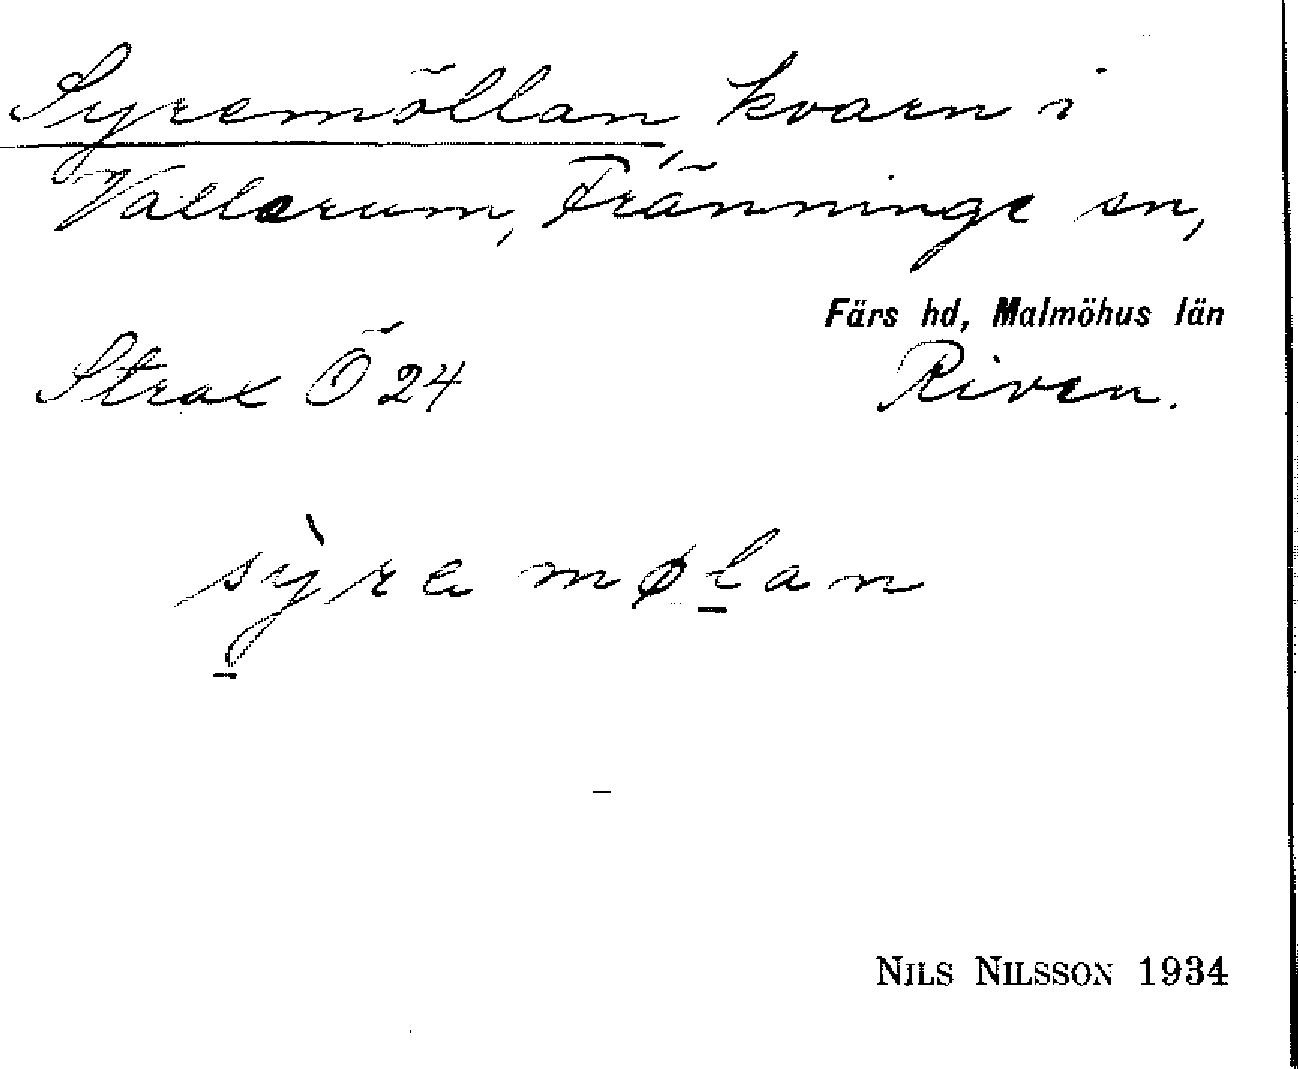 Syremöllan, kvarn i
Vallarum, Fränninge sn,
Färs hd, Malmöhus län
Strax Ö 24 Riven.
sỳre mølan
NILS NILSSON 1934